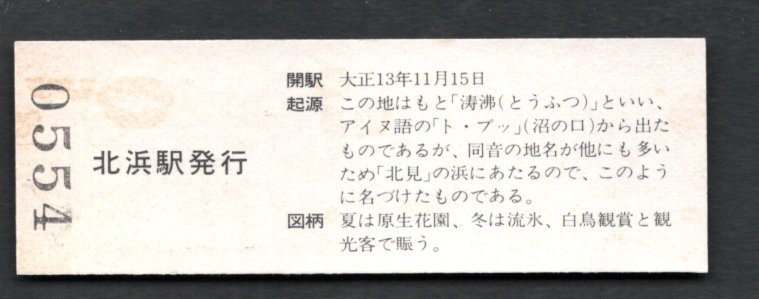 0554
北浜駅発行
開駅 大正13年11月15日
起源 この地はもと「涛沸(とうふつ)」といい、
アイヌ語の「ト・プッ」(沼の口)から出た
ものであるが、同音の地名が他にも多い
ため「北見」の浜にあたるので、このよう
に名づけたものである。
図柄 夏は原生花園、冬は流氷、白鳥観賞と観
光客で賑う。